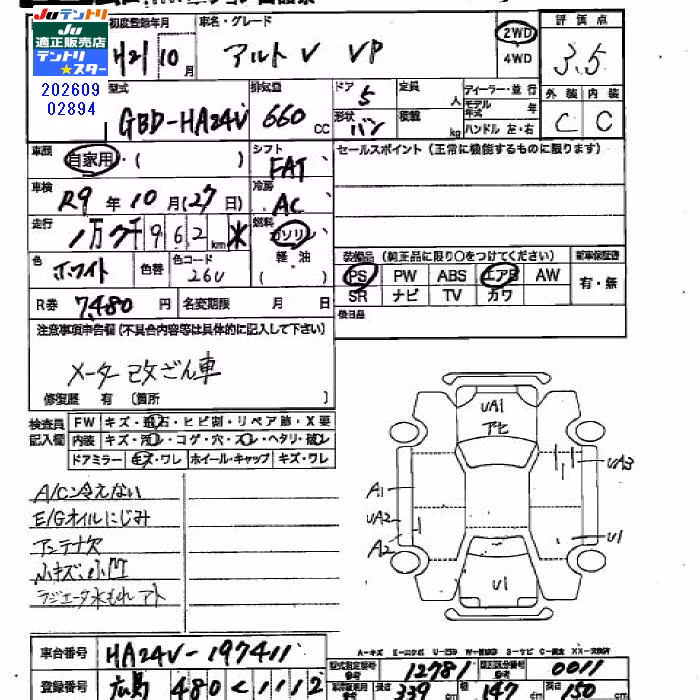 Juテントリ
Ju
適正販売店
テントリ
★スター
202609
02894
初度登録年月
H21 10月
車名・グレード
アルト V VP
2WD
4WD
評価点
3.5
型式
GBD-HA24V
排気量
660 CC
ドア
5
形状
バン
定員
人
積載
kg
ディーラー・並行
モデル年式
年
ハンドル 左・右
外装 内装
C C
車歴
自家用・( )
シフト
FAT
セールスポイント (正常に機能するものに限ります)
車検
R9年10月(27日)
冷房
AC
走行
1万7千962km*
燃料
ガソリン
軽・油
( )
色
ホワイト
色替
色コード
26U
装備品 (純正品に限り○をつけてください)
新車保証書
PS PW ABS エアB AW
有・無
SR ナビ TV カワ
後日品
R券
7,480円
名変期限 月 日
注意事項申告欄(不具合内容等は具体的に記入して下さい)
メーター改ざん車
修復歴 有 〔箇所 〕
検査員
記入欄
FW キズ・飛石・ヒビ割・リペア跡・X要
内装 キズ・汚レ・コゲ・穴・スレ・ヘタリ・破レ
ドアミラー キズ・ワレ ホイール・キャップ キズ・ワレ
A/C冷えない
E/Gオイルにじみ
アンテナ欠
小キズ、小凹
ラジエータ水もれアト
UA1
アヒ
UA3
A1
UA2
A2
U1
U1
A-キズ
車台番号
HA24V-197411
型式指定番号
12781
類別区分番号
0011
登録番号
広島 480 く 1112
長さ
339
cm
幅
147
cm
高さ
150